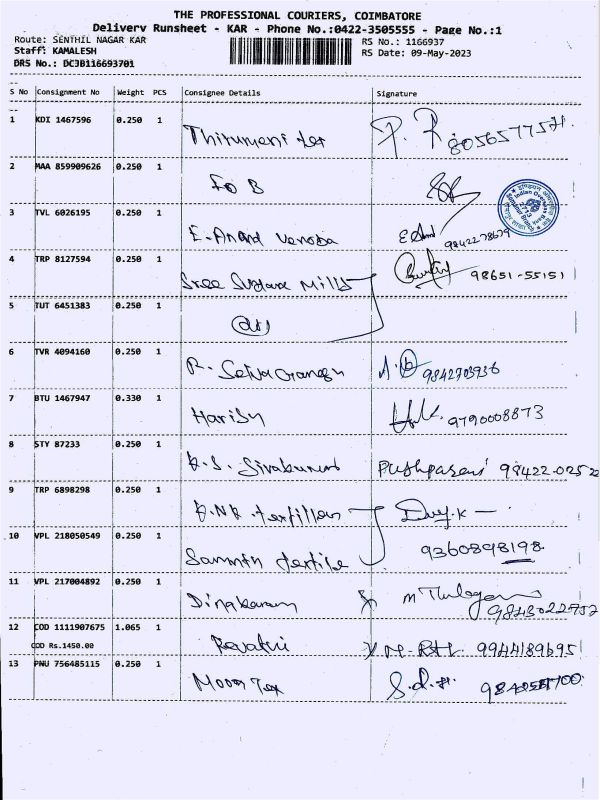 THE PROFESSIONAL COURIERS, COIMBATORE
Delivery Runsheet - KAR - Phone No.:0422-3505555 - Page No.:1
Route: SENTHIL NAGAR KAR
RS No.: 1166937
Staff: KAMALESH
RS Date: 09-May-2023
DRS No.: DC3B116693701
S No Consignment No Weight PCS Consignee Details Signature
1 KDI 1467596 0.250 1 Thirumeni tex
2 MAA 859909626 0.250 1 IOB
3 TVL 6026195 0.250 1 E. Anand Venoba 9842278679
4 TRP 8127594 0.250 1 Sree Sugare Mills 98651-55151
5 TUT 6451383 0.250 1
6 TVR 4094160 0.250 1 R. 9842703936
7 BTU 1467947 0.330 1 Harish 9790008873
8 STY 87233 0.250 1 K.S. Sivakumar 98422-02522
9 TRP 6898298 0.250 1 K.NK
10 VPL 218050549 0.250 1 textile 9360898198
11 VPL 217004892 0.250 1 Dinakaran M 9843022752
12 COD 1111907675 1.065 1 Revathi 9944189695
COD Rs.1450.00
13 PNU 756485115 0.250 1 Moon Tex